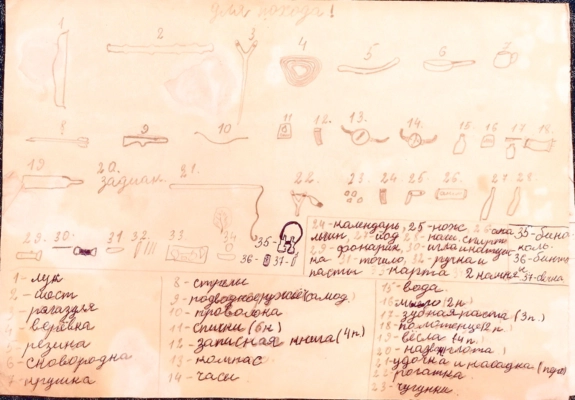 ДЛЯ ПОХОДА!
1 2 3 4 5 6 7
8 9 10 11 12. 13. 14. 15 16 17 18.
19 20. 21. 22. 23. 24. 25. 26. 27. 28
задиак
29. 30. 31 32. 33. 34 35-
36- 37-
24-календарь, 25-нож,
28-наш. спирт
29-фонарик, 30-игла и катуш
на 31-точило, 32-ручка и
пасты 33 карта 2 камня
35-бино
коль.
36-бинт
и 37-свеча
1-лук
2-мост
рогатка
4-верёвка
резина
6-сковородка
7-крушка
8-стрелы
9-подводное ружьё (самод)
10-проволока
11-спички (6н)
12-записная книга (4п.)
13-компас
14-часы
15-вода
16 мыло (2н)
17-зубная паста (3п.)
18-полотенце (2п)
19-вёсла (4п.)
21-удочка и насадка
22-рогатка.
23-чугунки